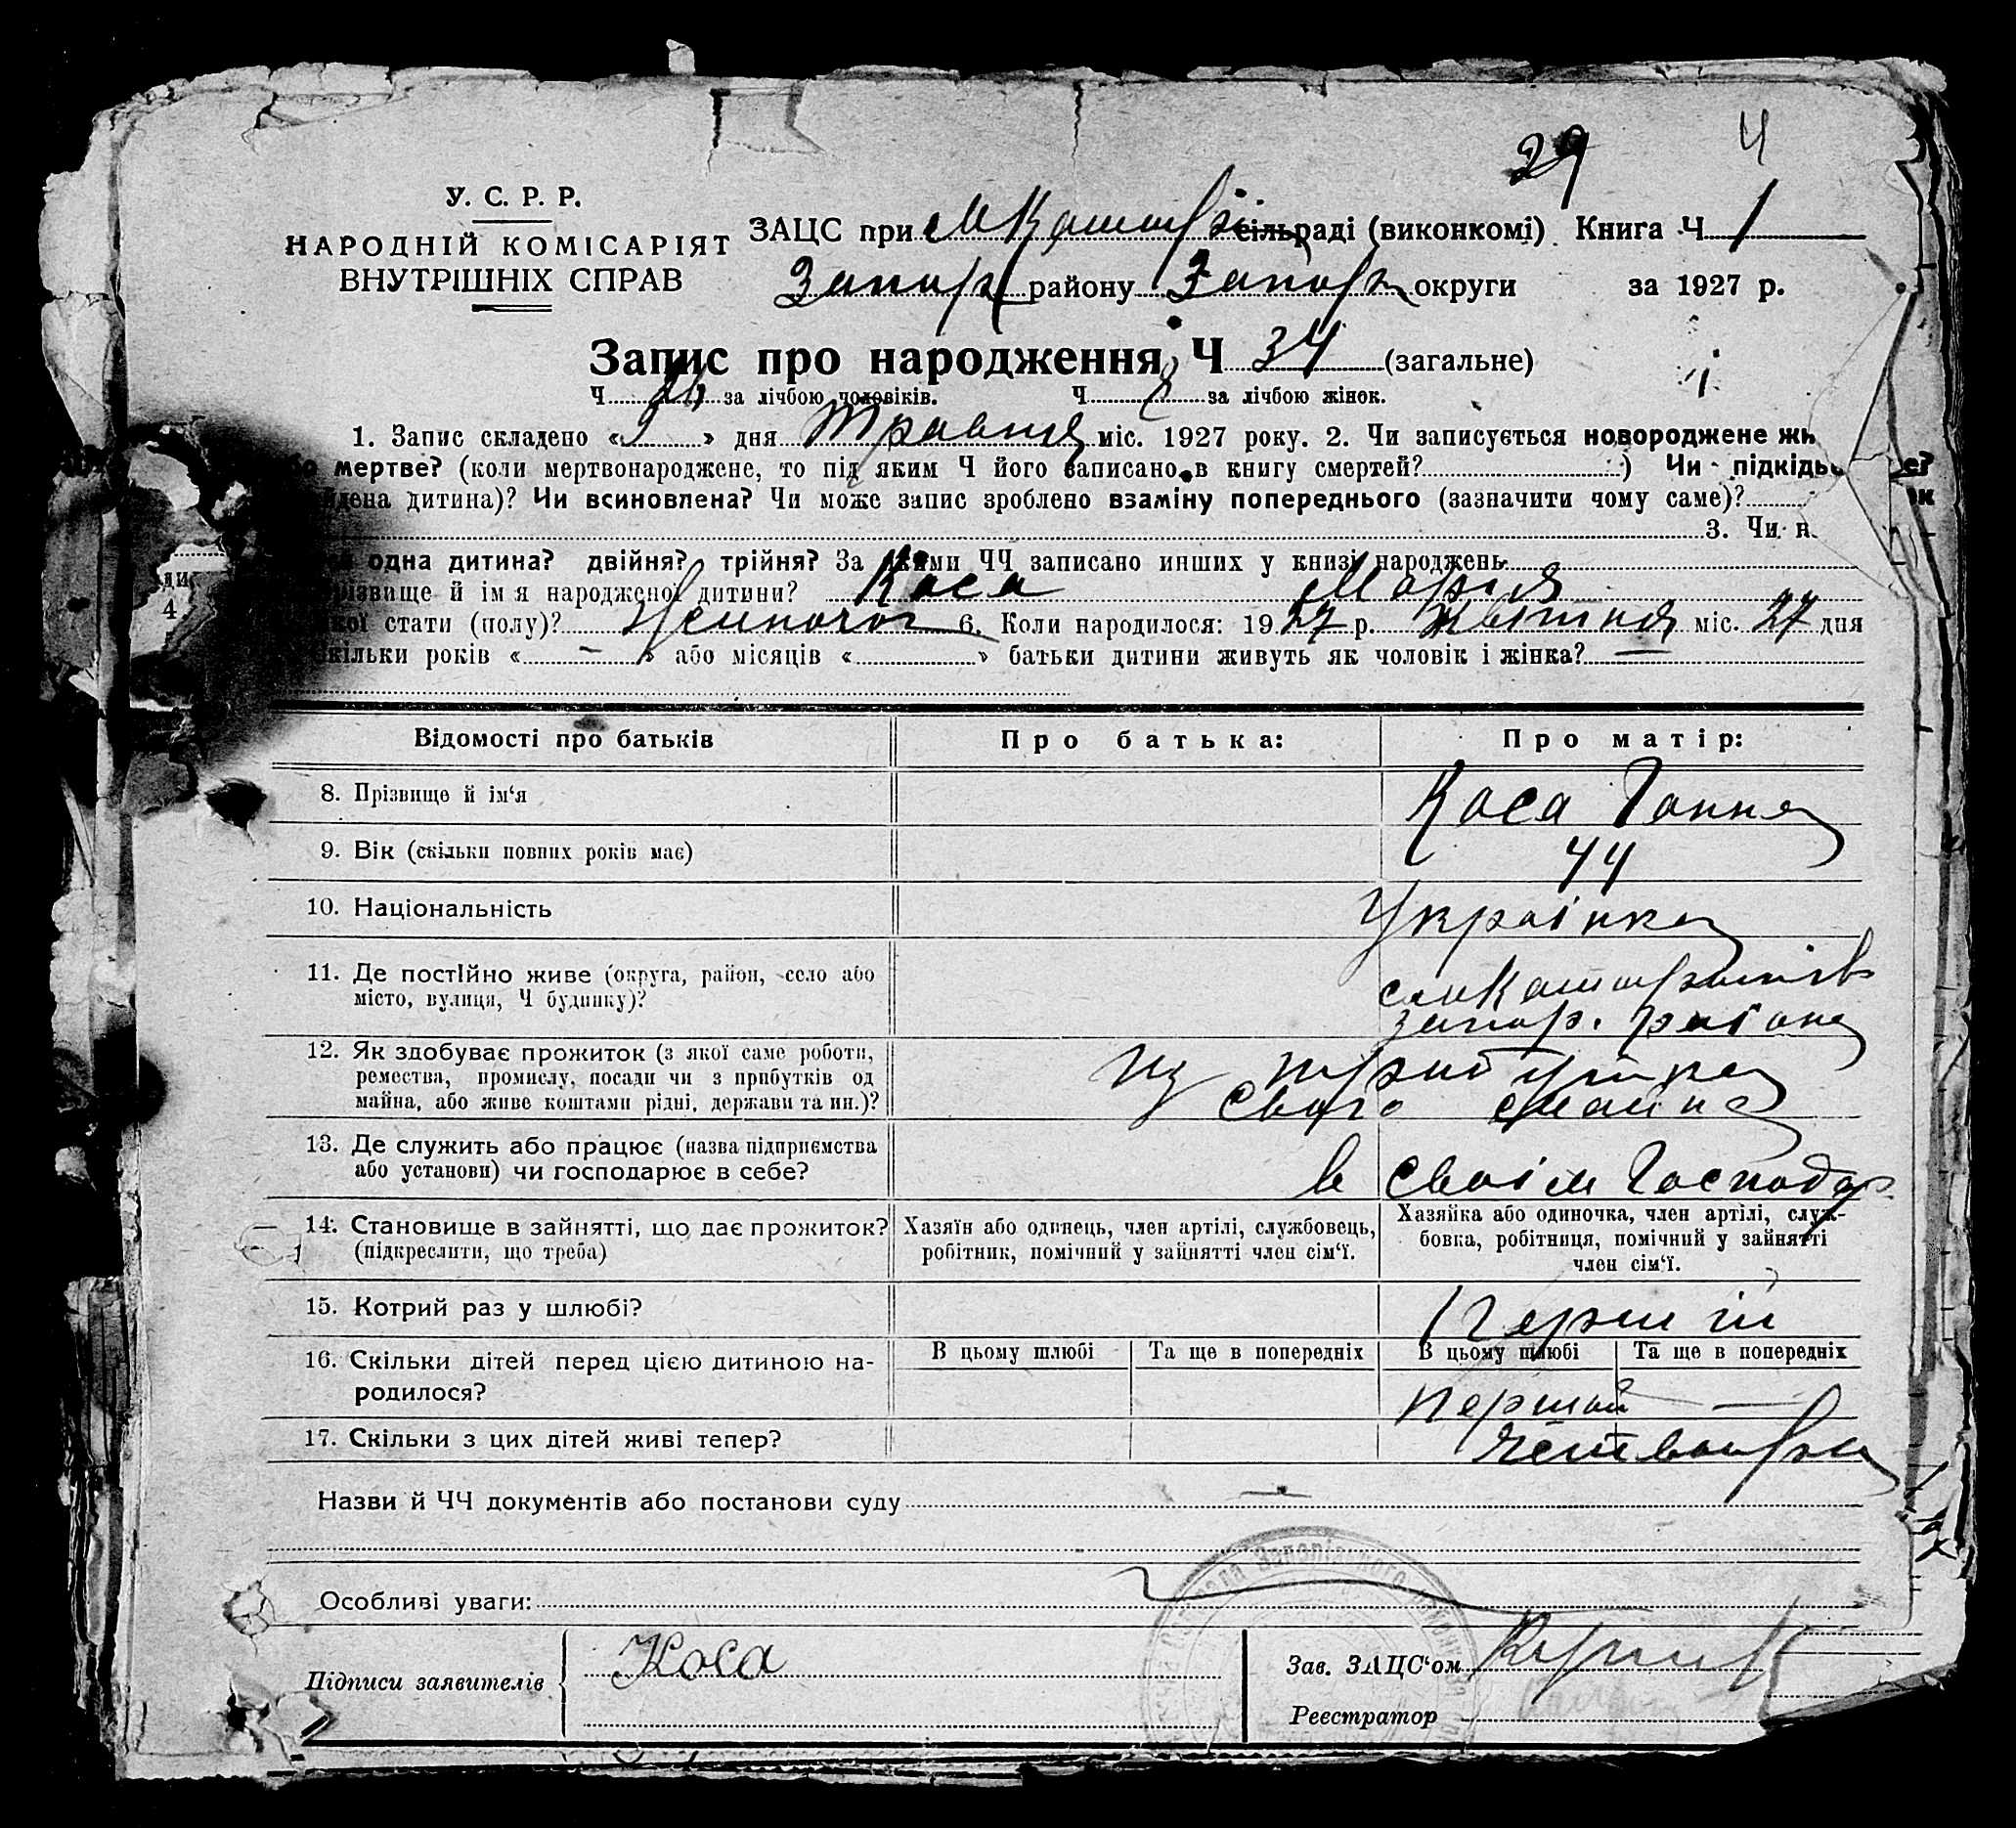 29 4
У. С. Р. Р.
НАРОДНІЙ КОМІСАРІЯТ
ВНУТРІШНІХ СПРАВ
ЗАЦС при сільраді (виконкомі) Книга Ч 1
Запор району Запор округи за 1927 р.
Запис про народження Ч 34 (загальне)
Ч за лічбою чоловіків. Ч за лічбою жінок.
1. Запис складено « » дня Травня міс. 1927 року. 2. Чи записується новороджене
мертве? (коли мертвонароджене, то під яким Ч його записано в книгу смертей? ) Чи
дитина)? Чи всиновлена? Чи може запис зроблено взаміну попереднього (зазначити чому саме)?
3. Чи
одна дитина? двійня? трійня? За якими ЧЧ записано инших у книзі народжень
й ім я народженої дитини? Коса Марія
стати (полу)? Женочої 6. Коли народилося: 1927 р. Квітня міс. 27 дня
років « — » або місяців « » батьки дитини живуть як чоловік і жінка? —
Відомості про батьків Про батька: Про матір:
8. Прізвище й ім‘я Коса Ганна
9. Вік (скільки повних років має) 44
10. Національність Українка
11. Де постійно живе (округа, район, село або
місто, вулиця, Ч будинку)?
запор. району
12. Як здобуває прожиток (з якої саме роботи,
ремества, промислу, посади чи з прибутків од
майна, або живе коштами рідні, держави та ин.)?
із прибутка
свого
13. Де служить або працює (назва підприємства
або установи) чи господарює в себе?
в своїм Господар
14. Становище в зайнятті, що дає прожиток?
(підкреслити, що треба)
Хазяїн або одинець, член артілі, службовець,
робітник, помічний у зайнятті член сім‘ї.
Хазяйка або одиночка, член артілі, служ-
бовка, робітниця, помічний у зайнятті
член сім‘ї.
15. Котрий раз у шлюбі? Перший
16. Скільки дітей перед цією дитиною на-
родилося?
В цьому шлюбі Та ще в попередніх В цьому шлюбі Та ще в попередніх
першой —
17. Скільки з цих дітей живі тепер? Четверо
Назви й ЧЧ документів або постанови суду —
Особливі уваги:
Підписи заявителів Коса
Зав. ЗАЦС‘ом
Реєстратор